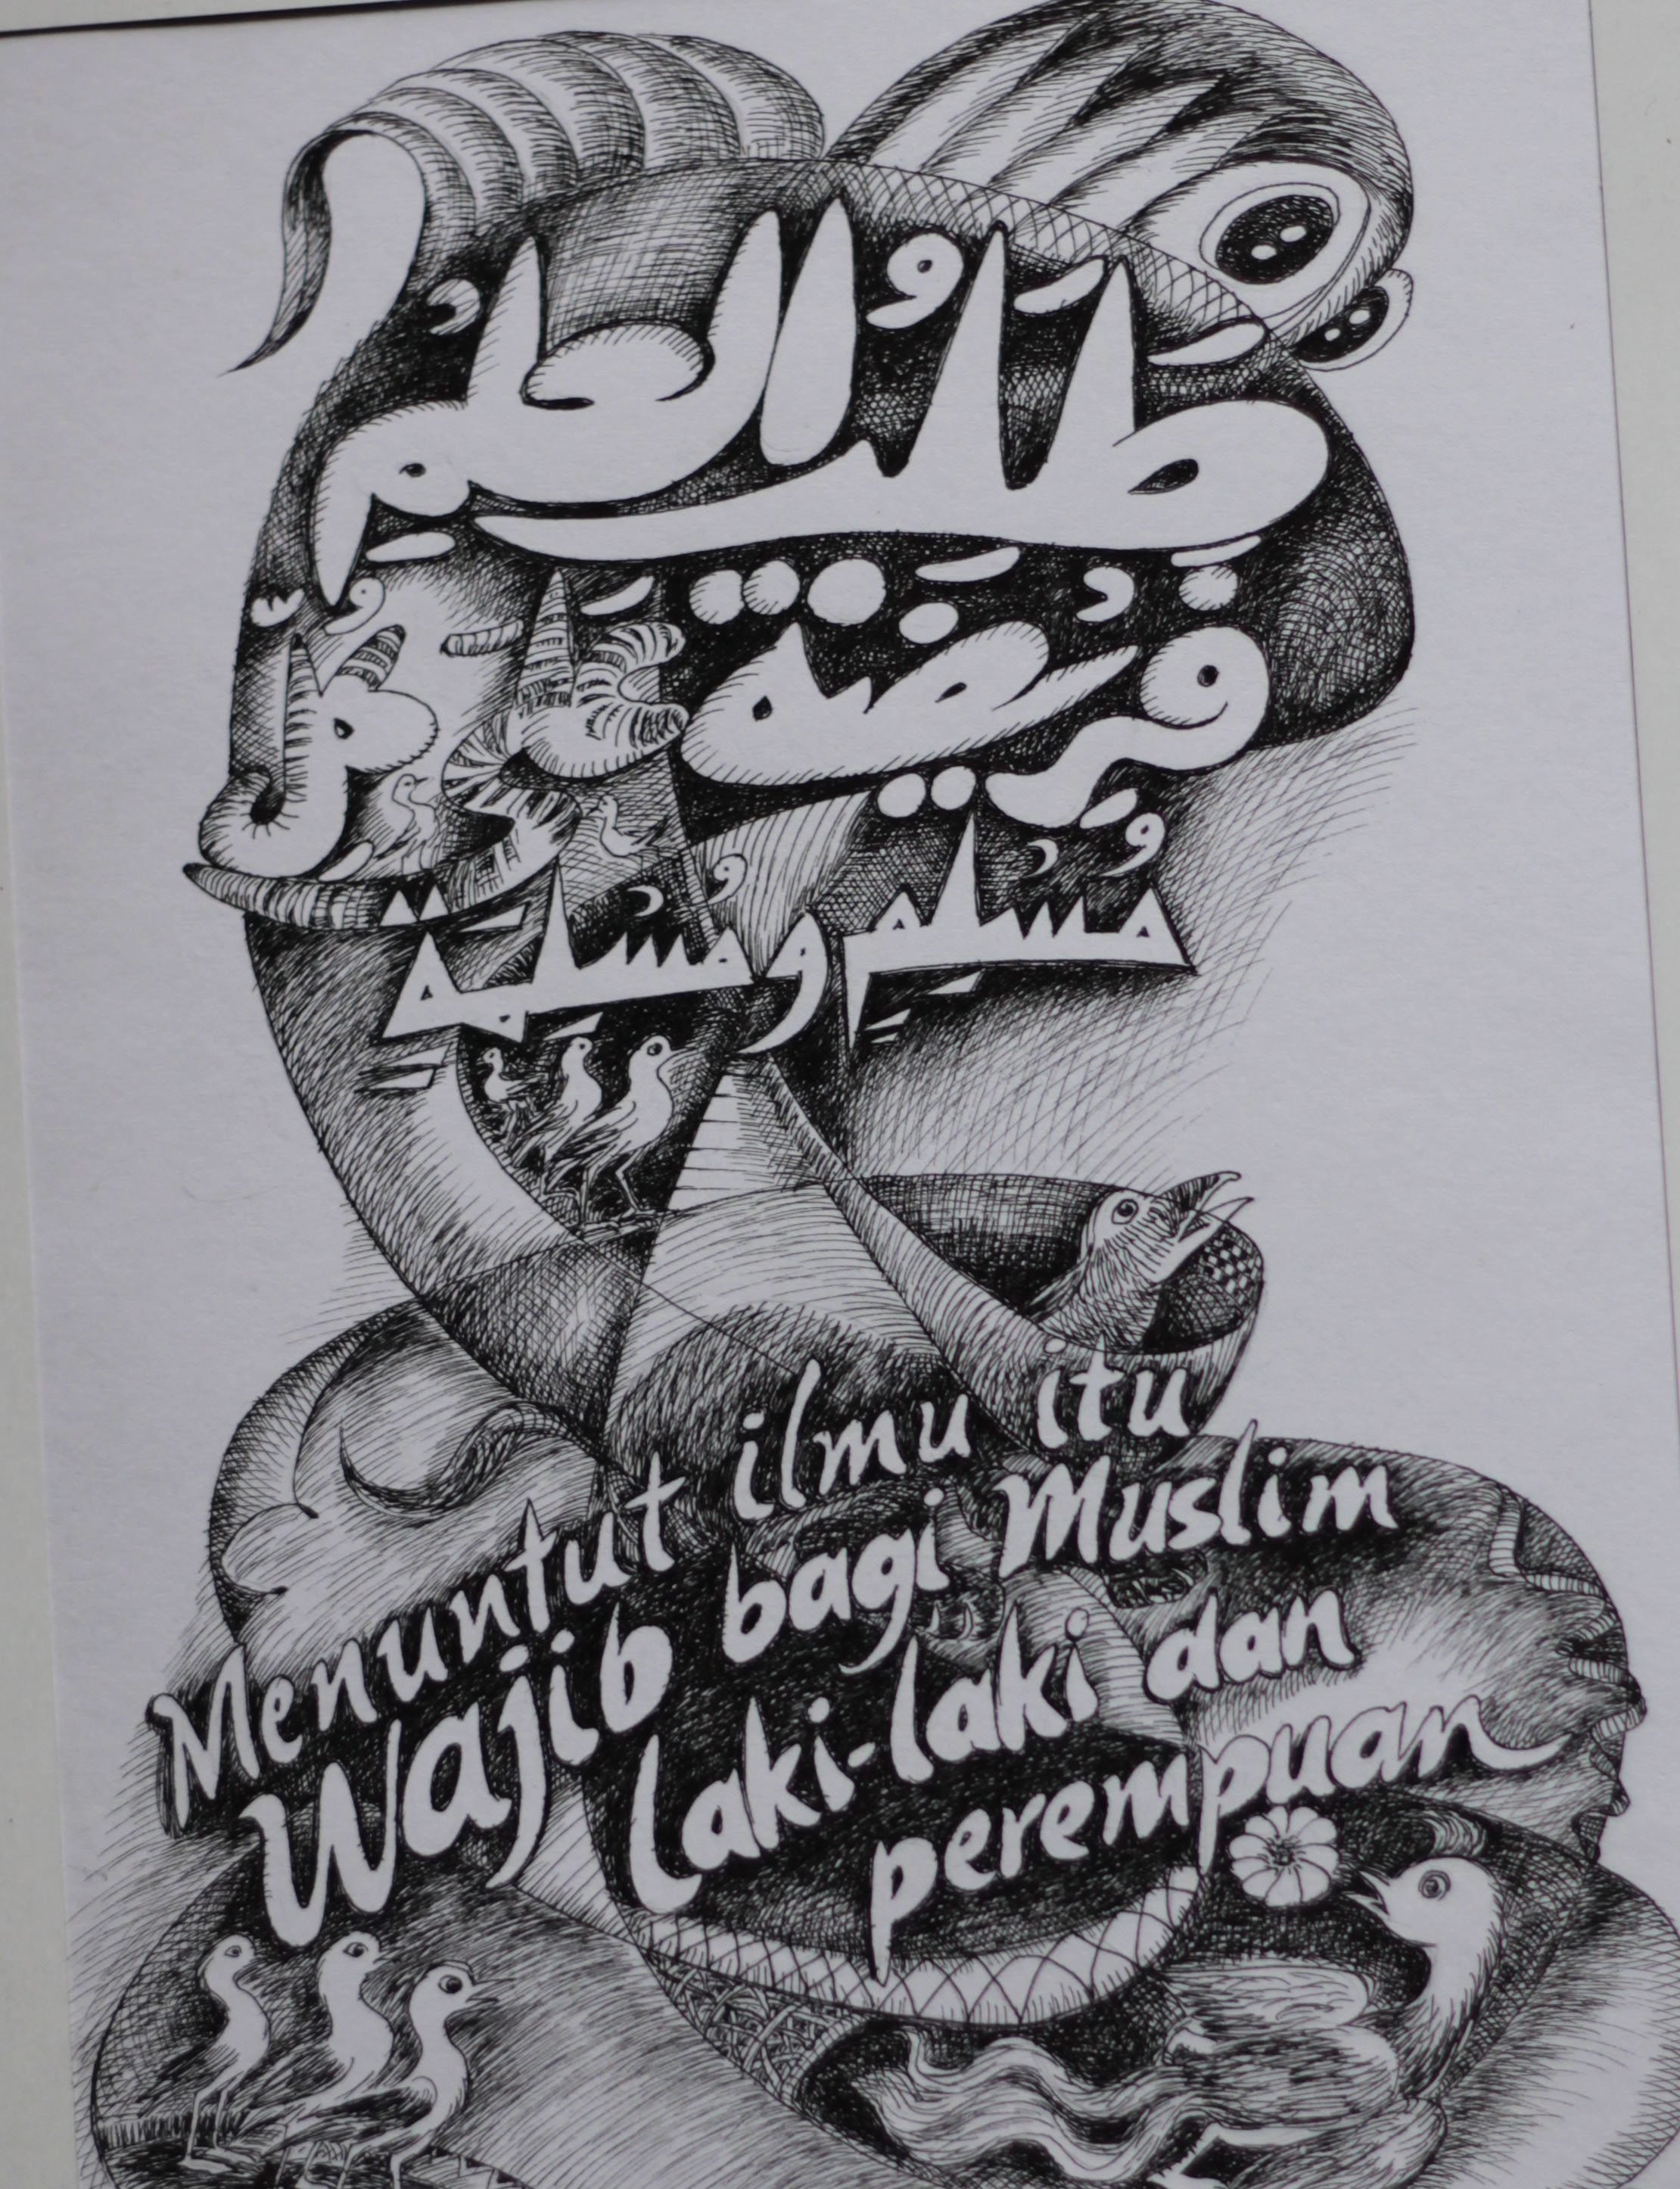 طَلَبُ الْعِلْمِ
فَرِيْضَةٌ عَلَى كُلِّ
مُسْلِمٍ وَمُسْلِمَةٍ
Menuntut ilmu itu
Wajib bagi Muslim
laki-laki dan
perempuan